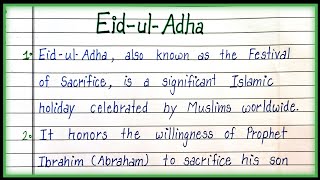 Eid-ul-Adha
1. Eid-ul-Adha, also known as the Festival
of Sacrifice, is a significant Islamic
holiday celebrated by Muslims worldwide.
2. It honors the willingness of Prophet
Ibrahim (Abraham) to sacrifice his son